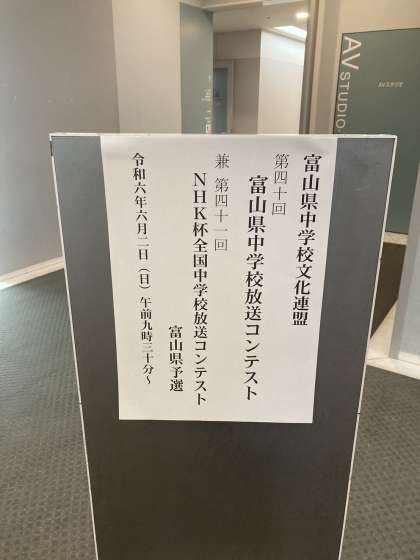 富山県中学校文化連盟
第四十回
富山県中学校放送コンテスト
兼 第四十一回
NHK杯全国中学校放送コンテスト
富山県予選
令和六年六月二日(日)午前九時三十分~
AV STUDIO
AVスタジオ